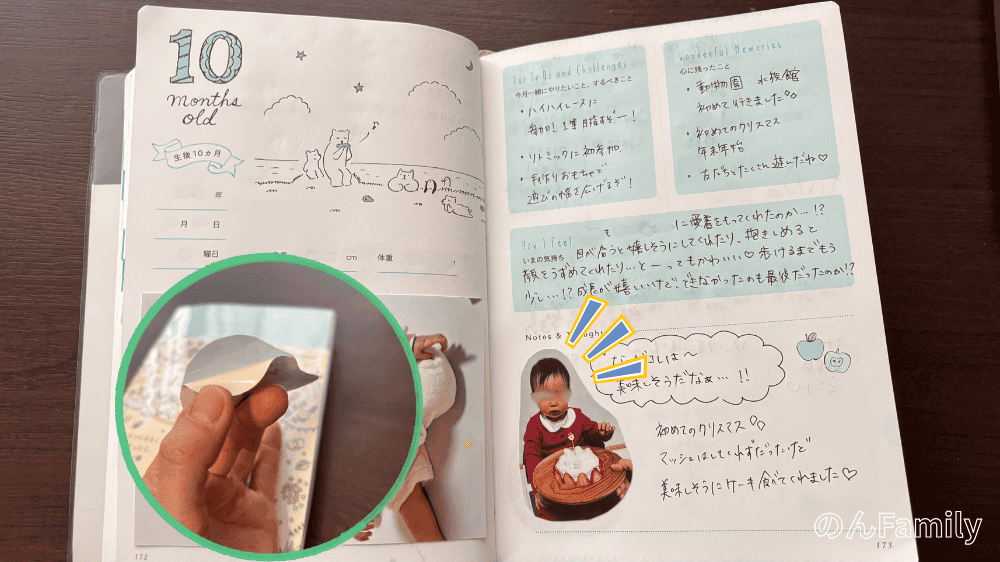 10
months
old
生後10ヵ月
年
月 日
曜日
cm
体重
172
Our To Do and Challenges
今月一緒にやりたいこと、するべきこと
・ハイハイレースに
参加! 1等目指すぞー!
・リトミックに初参加
・手作りおもちゃで
遊びの幅を広げるぞ!
Wonderful Memories
心に残ったこと
・動物園・水族館
初めて行きました
・初めてのクリスマス
年末年始
・友だちとたくさん遊んだね♡
How I Feel
いまの気持ち
も
に愛着をもってくれたのか…!?
目が合うと嬉しそうにしてくれたり、抱きしめると
顔をうずめてくれたり…とーってもかわいい♡歩けるまでもう
少し…!?成長が嬉しいけど、できなかったのも最後だったのか!?
Notes &
なんだコレは〜
美味しそうだなぁ…!!
初めてのクリスマス
マッシュはしてくれずだったけど
美味しそうにケーキ食べてくれました♡
のんFamily
173